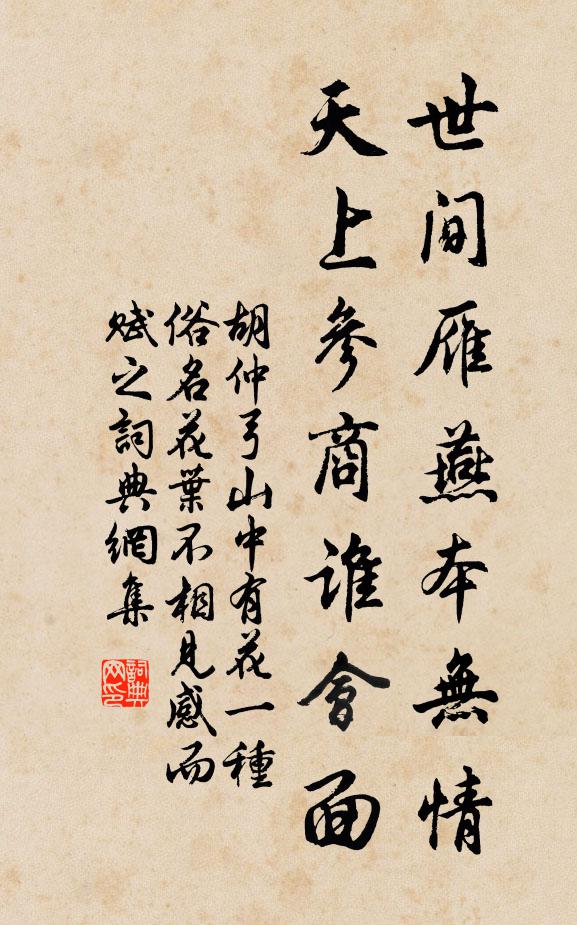 世間雁燕本無情
天上參商誰會面
胡仲弓山中有花一種
俗名花葉不相見感而
賦之詞典網集
詞典网印